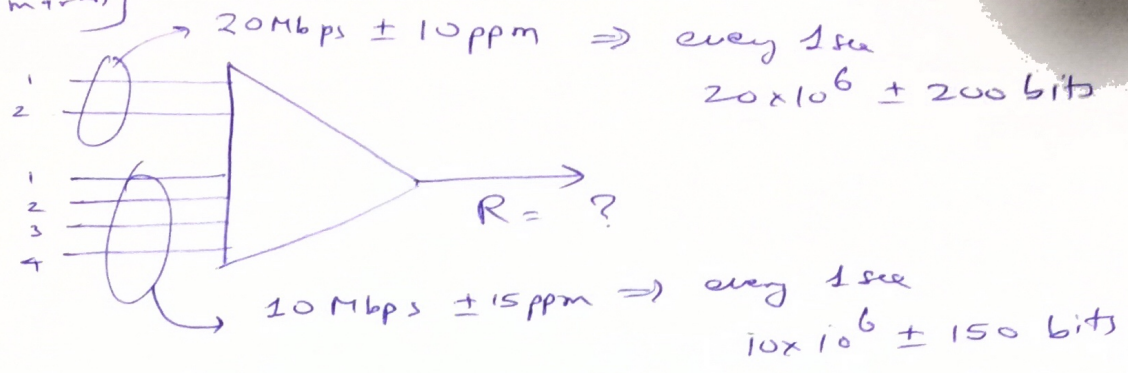 20Mbps ± 10ppm ⇒ every 1 sec
20x10⁶ ± 200 bits
1
2
1
2
3
4
R = ?
10 Mbps ± 15ppm ⇒ every 1 sec
10x10⁶ ± 150 bits